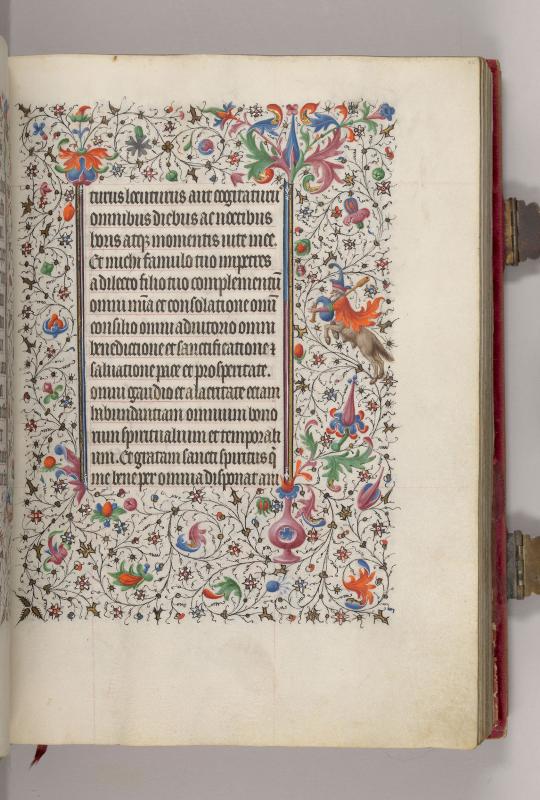 turus locuturus aut cogitaturus
omnibus diebus ac noctibus
horis atqз momentis uite mee.
Et michi famulo tuo impetres
a dilecto filio tuo complementū
omni mīa et consolatione omī
consilio omni adiutorio omni
benedictione et sanctificatione ⁊
saluatione pace et prosperitate.
omni gaudio et alacritate etiam
habundantiam omnium bono
rum spiritualium et temporali
um. Et gratiam sancti spiritus q̄
me bene per omnia disponat ani